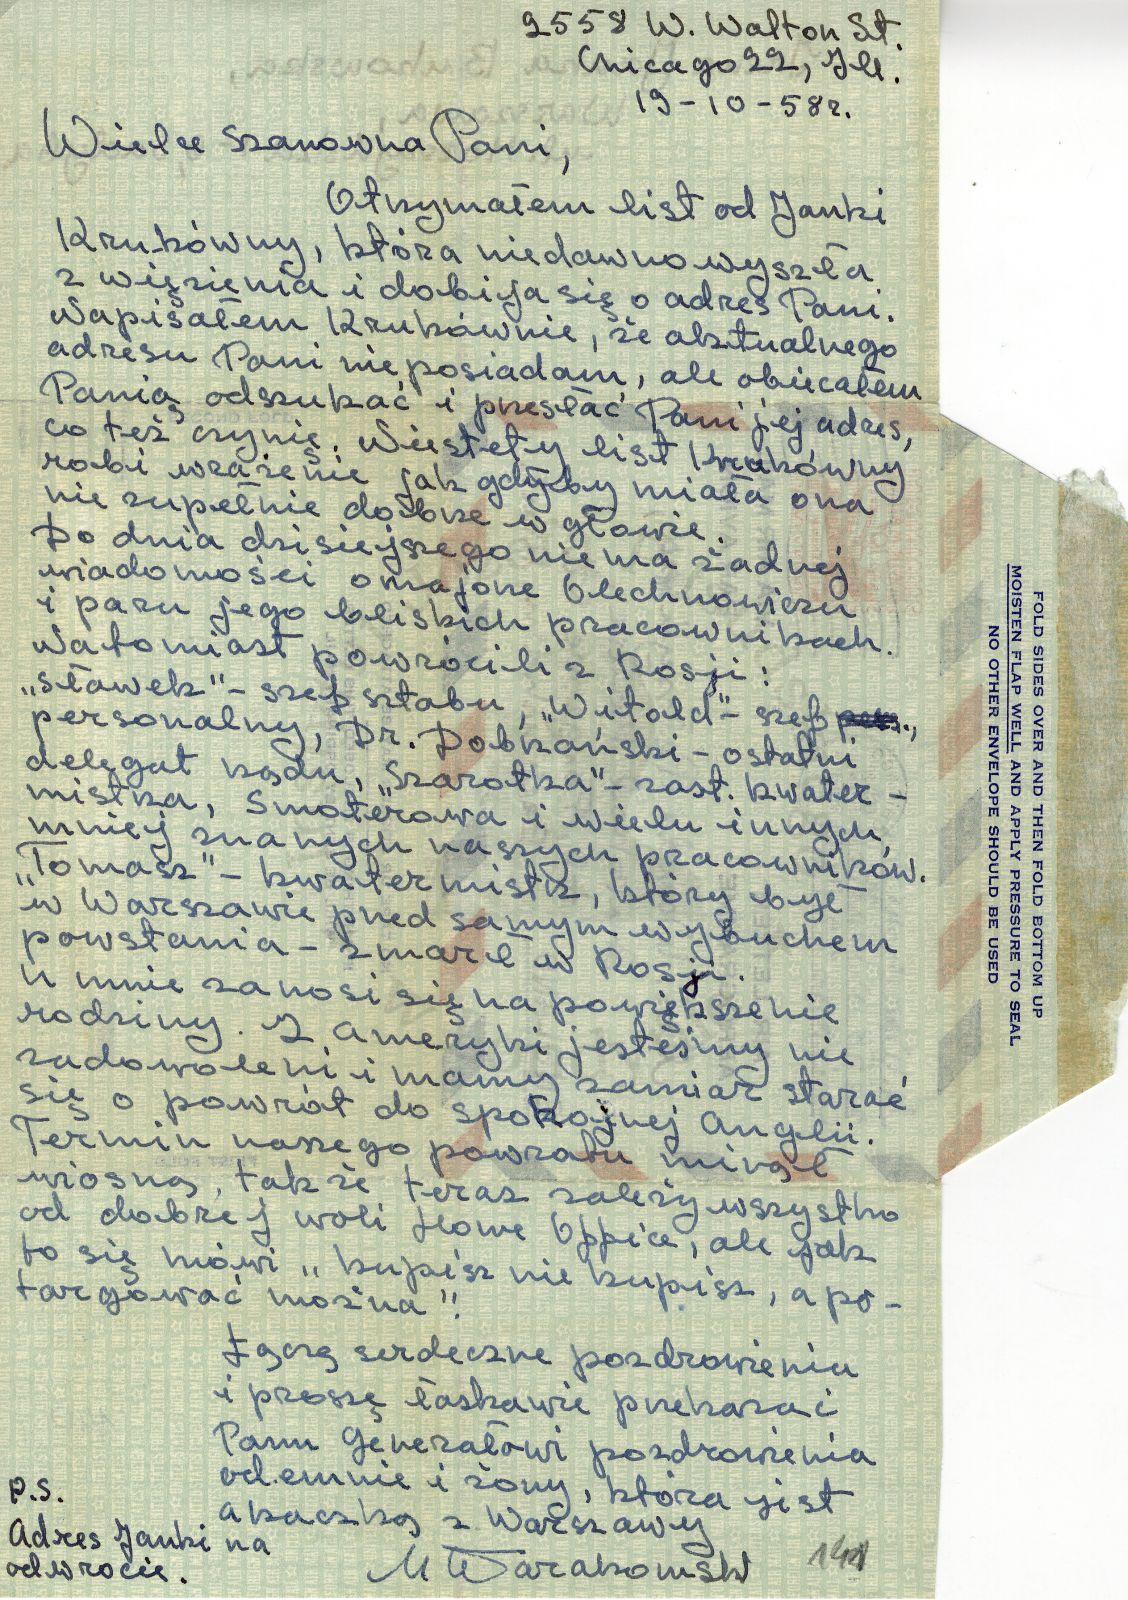 2558 W. Walton St.
Chicago 22, Ill.
19-10-58r.
Wielce Szanowna Pani,
Otrzymałem list od Janki
Krukówny, która niedawno wyszła
z więzienia i dobija się o adres Pani.
Napisałem Krukównie, że aktualnego
adresu Pani nie posiadam, ale obiecałem
Panią odszukać i przesłać Pani jej adres,
co też czynię. Niestety list Krukówny
robi wrażenie jak gdyby miała ona
nie zupełnie dobrze w głowie.
Do dnia dzisiejszego niema żadnej
wiadomości o majorze Olechnowiczu
i paru jego bliskich pracownikach.
Natomiast powrócili z Rosji:
"Sławek" - szef sztabu, "Witold" - szef
personalny, Dr. Dobrzański - ostatni
delegat rządu, "Szarotka" - zast. kwater-
mistrza, Smoterowa i wielu innych,
mniej znanych naszych pracowników.
"Tomasz" - kwatermistrz, który był
w Warszawie przed samym wybuchem
powstania - zmarł w Rosji.
U mnie zanosi się na powiększenie
rodziny. Z Ameryki jesteśmy nie
zadowoleni i mamy zamiar starać
się o powrót do spokojnej Anglii.
Termin naszego powrotu minął
wiosną, tak że teraz zależy wszystko
od dobrej woli Home Office, ale jak
to się mówi "kupisz nie kupisz, a po-
targować można".
Łączę serdeczne pozdrowienia
i proszę łaskawie przekazać
Panu Generałowi pozdrowienia
odemnie i żony, która jest
akaczką z Warszawy
M Warakomski
P.S.
Adres Janki na
odwrocie.
141
FOLD SIDES OVER AND THEN FOLD BOTTOM UP
MOISTEN FLAP WELL AND APPLY PRESSURE TO SEAL
NO OTHER ENVELOPE SHOULD BE USED